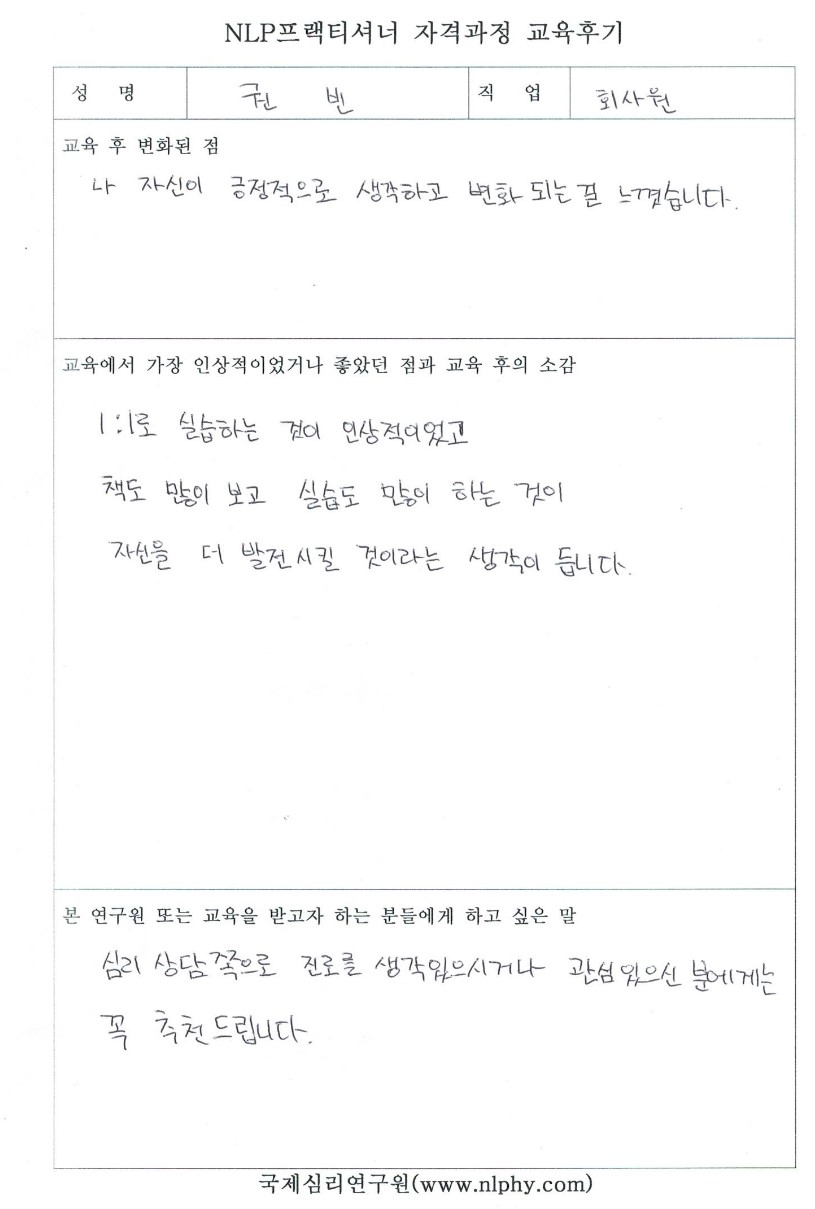 NLP프랙티셔너 자격과정 교육후기
성 명 권 빈 직 업 회사원
교육 후 변화된 점
나 자신이 긍정적으로 생각하고 변화 되는걸 느꼈습니다.
교육에서 가장 인상적이었거나 좋았던 점과 교육 후의 소감
1:1로 실습하는 것이 인상적이었고
책도 많이 보고 실습도 많이 하는 것이
자신을 더 발전시킬 것이라는 생각이 듭니다.
본 연구원 또는 교육을 받고자 하는 분들에게 하고 싶은 말
심리 상담쪽으로 진로를 생각있으시거나 관심있으신 분에게는
꼭 추천드립니다.
국제심리연구원(www.nlphy.com)